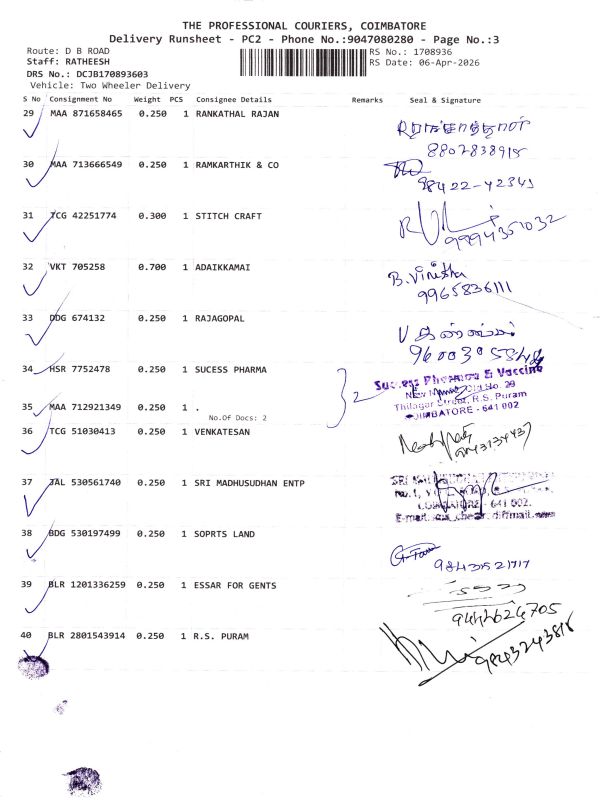 THE PROFESSIONAL COURIERS, COIMBATORE
Delivery Runsheet - PC2 - Phone No.:9047080280 - Page No.:3
Route: D B ROAD
RS No.: 1708936
Staff: RATHEESH
RS Date: 06-Apr-2026
DRS No.: DCJB170893603
Vehicle: Two Wheeler Delivery
S No Consignment No Weight PCS Consignee Details Remarks Seal & Signature
29 MAA 871658465 0.250 1 RANKATHAL RAJAN
8807838918
30 MAA 713666549 0.250 1 RAMKARTHIK & CO
98422-42341
31 TCG 42251774 0.300 1 STITCH CRAFT
9994351032
32 VKT 705258 0.700 1 ADAIKKAMAI
B. Vinitha
9965836111
33 DDG 674132 0.250 1 RAJAGOPAL
34 HSR 7752478 0.250 1 SUCESS PHARMA
2
Sucess Pharma & Vaccine
Old No. 29
Thilagar Street, R.S. Puram
COIMBATORE - 641 002
35 MAA 712921349 0.250 1 .
No.Of Docs: 2
36 TCG 51030413 0.250 1 VENKATESAN
37 JAL 530561740 0.250 1 SRI MADHUSUDHAN ENTP
SRI
COIMBATORE - 641 002.
38 BDG 530197499 0.250 1 SOPRTS LAND
39 BLR 1201336259 0.250 1 ESSAR FOR GENTS
9442624705
40 BLR 2801543914 0.250 1 R.S. PURAM
9843243818